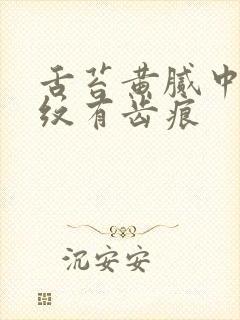 舌苔黄腻中
纹有齿痕
沉安安